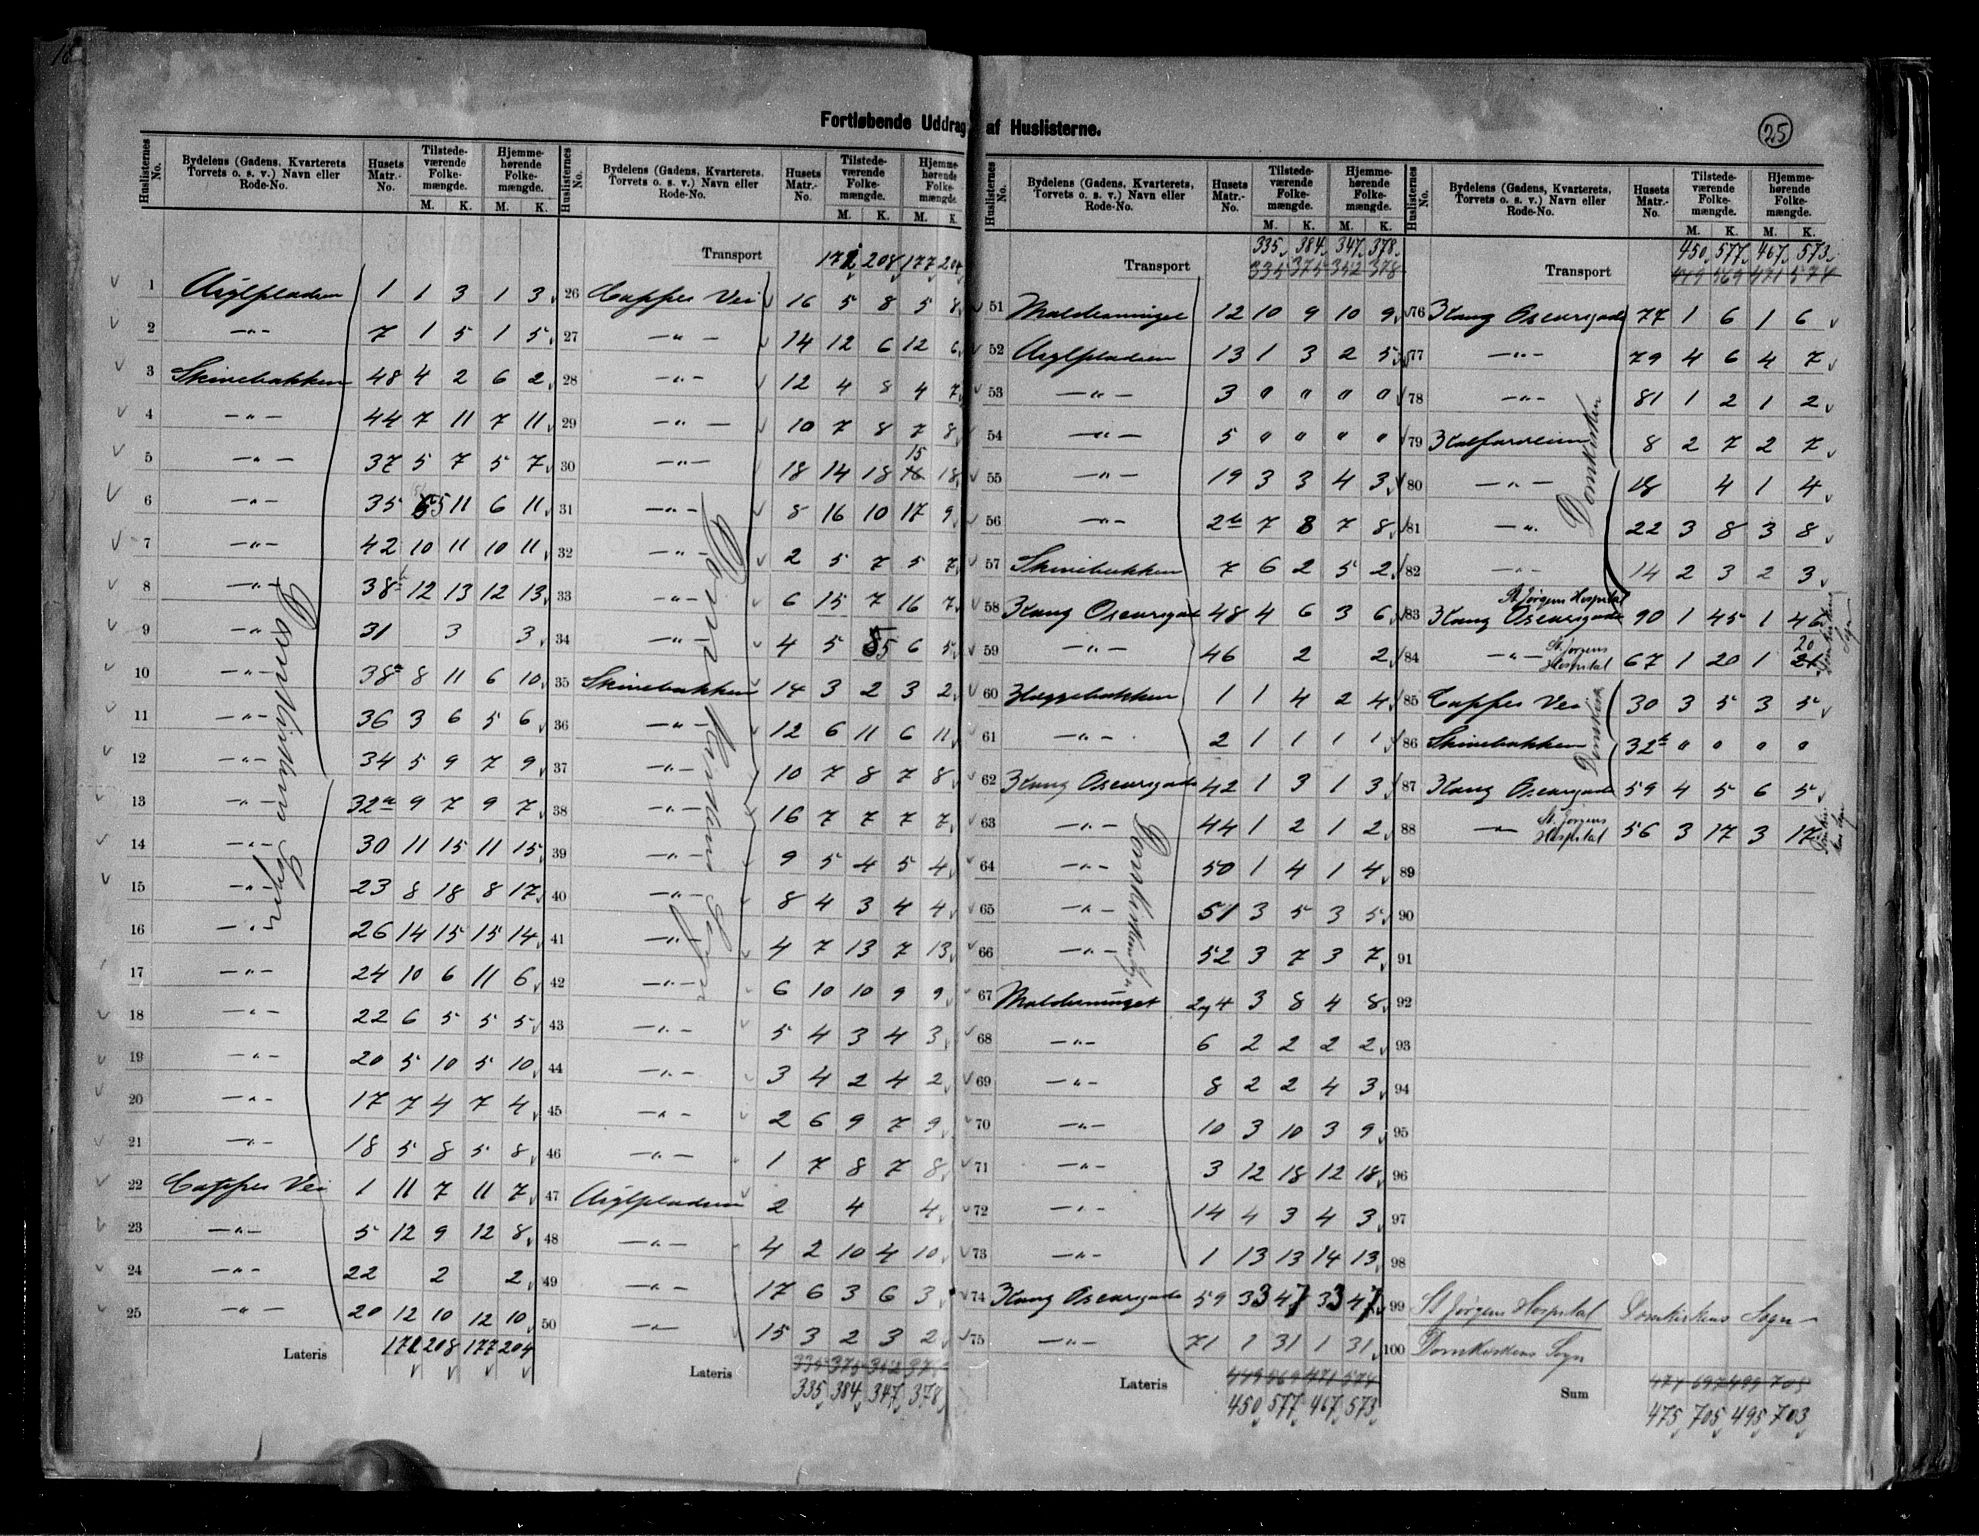 Fortløbende Uddrag af Huslisterne.
25
Huslisternes No. | Bydelens (Gadens, Kvarterets Torvets o. s. v.) Navn eller Rode-No. | Husets Matr.-No. | Tilstedeværende Folkemængde. M. K. | Hjemmehørende Folkemængde. M. K.
1 Asylpladsen 1 1 3 1 3
2 —„— 7 1 5 1 5
3 Skivebakken 48 4 2 6 2
4 —„— 44 7 11 7 11
5 —„— 37 5 7 5 7
6 —„— 35 5 11 6 11
7 —„— 42 10 11 10 11
8 —„— 38 12 13 12 13
9 —„— 31 3 3
10 —„— 38a 8 11 6 10
11 —„— 36 3 6 5 6
12 —„— 34 5 9 7 9
13 —„— 32a 9 7 9 7
14 —„— 30 11 15 11 15
15 —„— 23 8 18 8 17
16 —„— 26 14 15 15 14
17 —„— 24 10 6 11 6
18 —„— 22 6 5 5 5
19 —„— 20 5 10 5 10
20 —„— 17 7 4 7 4
21 —„— 18 5 8 5 8
22 Cappes Vei 1 11 7 11 7
23 —„— 5 12 9 12 8
24 —„— 22 2 2
25 —„— 20 12 10 12 10
Lateris 172 208 177 204
Transport 172 208 177 204
26 Cappes Vei 16 5 8 5 8
27 —„— 14 12 6 12 6
28 —„— 12 4 8 4 7
29 —„— 10 7 8 7 8
30 —„— 18 14 18 15 18
31 —„— 8 16 10 17 9
32 —„— 2 5 7 5 7
33 —„— 6 15 7 16 7
34 —„— 4 5 5 6 5
35 Skivebakken 14 3 2 3 2
36 —„— 12 6 11 6 11
37 —„— 10 7 8 7 8
38 —„— 16 7 7 7 7
39 —„— 9 5 4 5 4
40 —„— 8 4 3 4 4
41 —„— 4 7 13 7 13
42 —„— 6 10 10 9 9
43 —„— 5 4 3 4 3
44 —„— 3 4 2 4 2
45 —„— 2 6 9 7 9
46 —„— 1 7 8 7 8
47 Asylpladsen 2 4 4
48 —„— 4 2 10 4 10
49 —„— 17 6 3 6 3
50 —„— 15 3 2 3 2
Lateris 335 384 347 378
Transport 335 384 347 378
51 12 10 9 10 9
52 Asylpladsen 13 1 3 2 5
53 —„— 3 0 0 0 0
54 —„— 5 0 0 0 0
55 —„— 19 3 3 4 3
56 —„— 2b 7 8 7 8
57 Skivebakken 7 6 2 5 2
58 Kong Oscarsgade 48 4 6 3 6
59 —„— 46 2 2
60 Heggebakken 1 1 4 2 4
61 —„— 2 1 1 1 1
62 Kong Oscarsgade 42 1 3 1 3
63 —„— 44 1 2 1 2
64 —„— 50 1 4 1 4
65 —„— 51 3 5 3 5
66 —„— 52 3 7 3 7
67 2 4 3 8 4 8
68 —„— 6 2 2 2 2
69 —„— 8 2 2 4 3
70 —„— 10 3 10 3 9
71 —„— 3 12 18 12 18
72 —„— 14 4 3 4 3
73 —„— 1 13 13 14 13
74 Kong Oscarsgade 59 33 47 33 47
75 —„— 71 1 31 1 31
Lateris 449 569 471 574
450 577 467 573
Transport 450 577 467 573
449 569 471 574
76 Kong Oscarsgade 77 1 6 1 6
77 —„— 79 4 6 4 7
78 —„— 81 1 2 1 2
79 Kalfarveien 8 2 7 2 7
80 —„— 18 4 1 4
81 —„— 22 3 8 3 8
82 —„— 14 2 3 2 3
83 St. Jørgens Hospital Kong Oscarsgade 90 1 45 1 46
84 —„— St. Jørgens Hospital 67 1 20 1 20
85 Cappes Vei 30 3 5 3 5
86 Skivebakken 32b 0 0 0 0
87 Kong Oscarsgade 59 4 5 6 5
88 —„— St. Jørgens Hospital 56 3 17 3 17
89
90
91
92
93
94
95
96
97
98
99 St Jørgens Hospital Domkirkens Sogn
100 Domkirkens Sogn
Sum 475 705 495 703
Domkirken